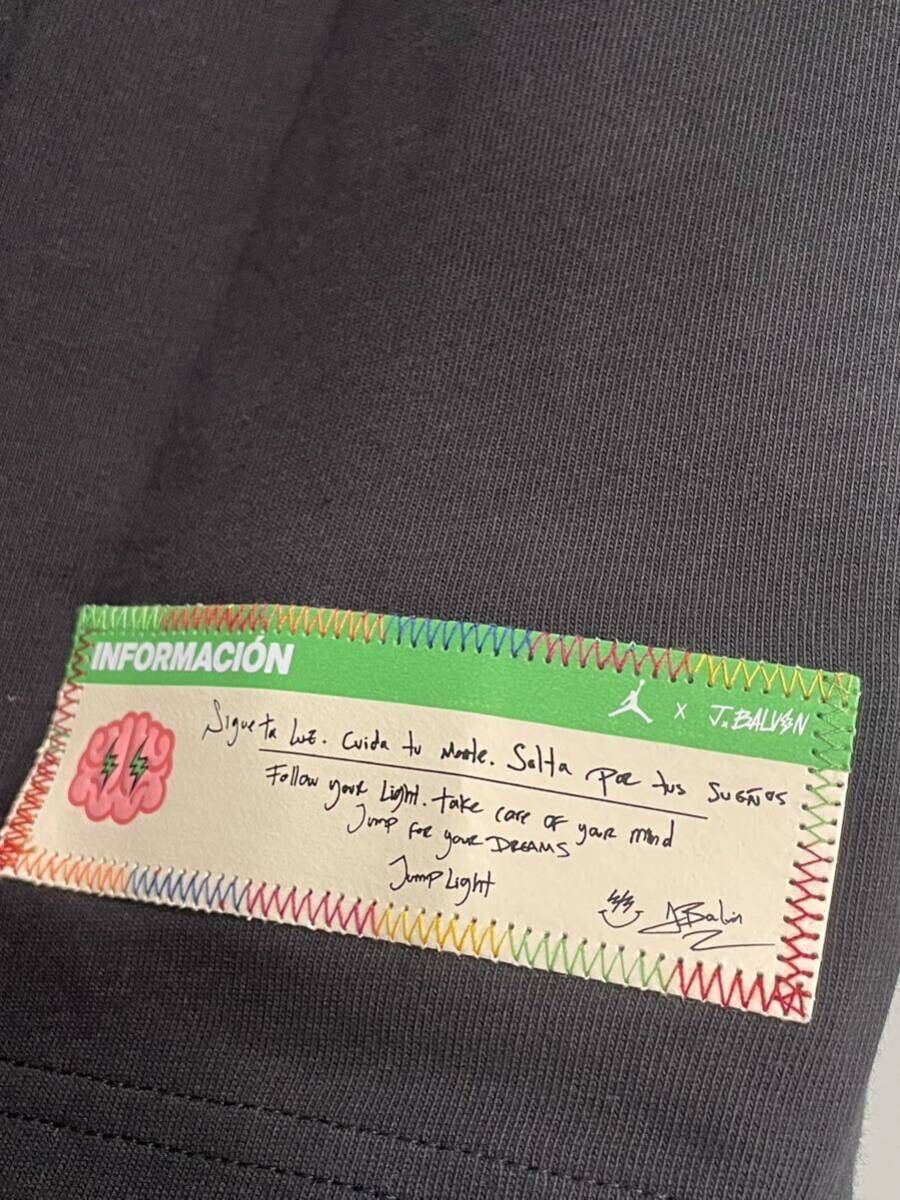 INFORMACIÓN
x J. BALVIN
Sigue tu Luz. Cuida tu Mente. Salta por tus Sueños
Follow your Light. take care of your mind
Jump for your DREAMS
Jump Light
JBalvin